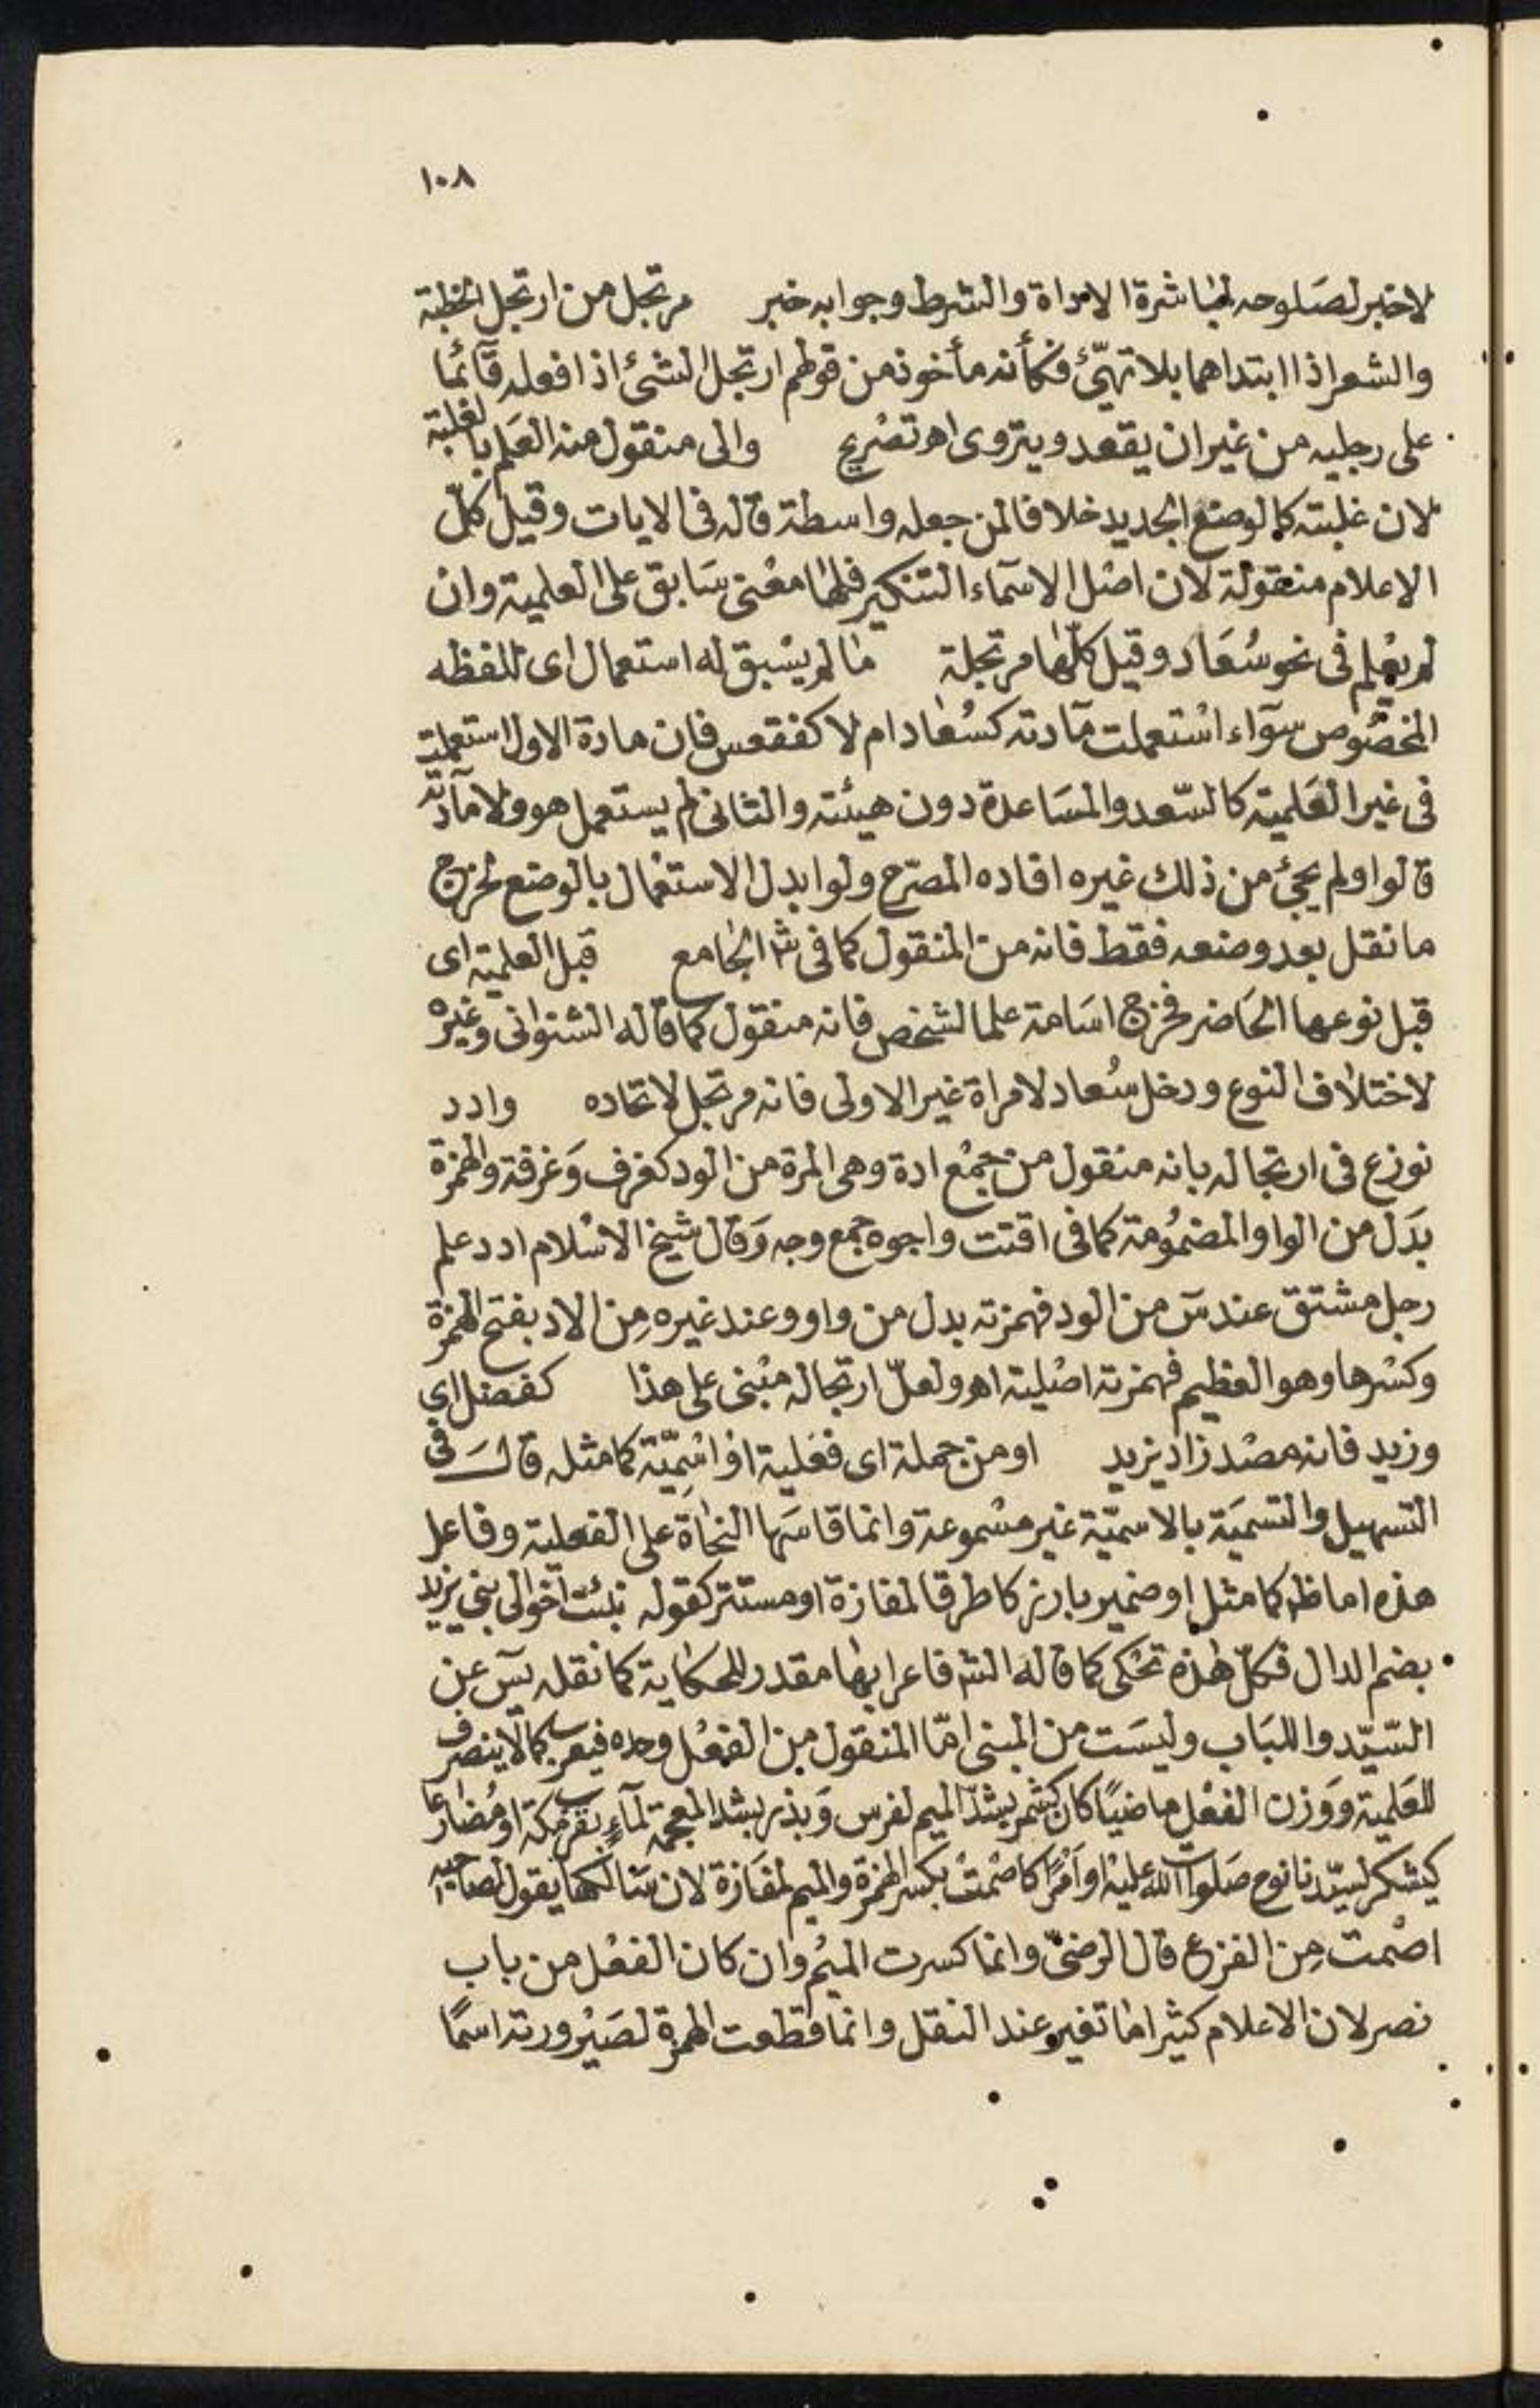 ١٠٨
لاخبر لصلوحه لمباشرة الاداة والشرط وجوابه خبر مرتجل من ارتجل الخطبة
والشعر اذا ابتداهما بلا تهيّئ فكأنه مأخوذ من قولهم ارتجل الشئ اذا فعله قآئما
على رجليه من غير ان يقعد ويتروى اه تصريح والى منقول منه العلم بالغلبة
لان غلبته كالوضع الجديد خلافا لمن جعله واسطة قاله فى الايات وقيل كلّ
الاعلام منقولة لان اصل الاسمآء التنكير فلها معنى سابق على العلمية وان
لم يعلم فى نحو سعاد وقيل كلّها مرتجلة ما لم يسبق له استعمال اى للفظه
المخصوص سوآء استعملت مآدته كسعاد ام لا كفقعس فان مادة الاول استعملت
فى غير العلمية كالسّعد والمساعدة دون هيئته والثانى لم يستعمل هو ولا مآدّته
قالوا ولم يجئ من ذلك غيره افاده المصرّح ولو ابدل الاستعمال بالوضع لخرج
ما نقل بعد وضعه فقط فانه من المنقول كما فى ش الجامع قبل العلمية اى
قبل نوعها الحاضر فخرج اسامة علما لشخص فانه منقول كما قاله الشنوانى وغيره
لاختلاف النوع ودخل سعاد لامراة غير الاولى فانه مرتجل لاتحاده وادد
نوزع فى ارتجاله بانه منقول من جمع ادة وهى المرة من الود كغرف وغرفة والهمزة
بدل من الواو المضمومة كما فى اقتت واجوه جمع وجه وقال شيخ الاسلام ادد علم
رجل مشتق عند س من الود فهمزته بدل من واو وعند غيره من الاد بفتح الهمزة
وكسرها وهو العظيم فهمزته اصلية اه ولعلّ ارتجاله مبنى على هذا كفضل اى
وزيد فانه مصدر زاد يزيد او من جملة اى فعلية او اسميّة كما مثله قال فى
التسهيل والتسمية بالاسميّة غير مسموعة وانما قاسها النحاة على الفعلية وفاعل
هذه اما ظ كما مثل او ضمير بارز كاطرقا لمفازة او مستتر كقوله نبئت اخوالى بنى يزيد
بضم الدال فكلّ هذه تحكى كما قاله الش فاعرابها مقدر للحكاية كما نقله يس عن
السّيّد واللباب وليست من المبنى امّا المنقول من الفعل وحده فيعرب كمالا ينصرف
للعلمية ووزن الفعل ماضيًا كان كشمر بشدّ الميم لفرس وبذر بشد المعجمة لمآء بقرب مكة او مضارعا
كيشكر لسيّدنا نوح صلوات الله عليه او امرًا كاصمت بكسر الهمزة والميم لمفازة لان سالكها يقول لصاحبه
اصمت من الفزع قال الرضىّ وانما كسرت الميم وان كان الفعل من باب
نصر لان الاعلام كثيرا ما تغير عند النقل وانما قطعت الهمزة لصيرورته اسمًا